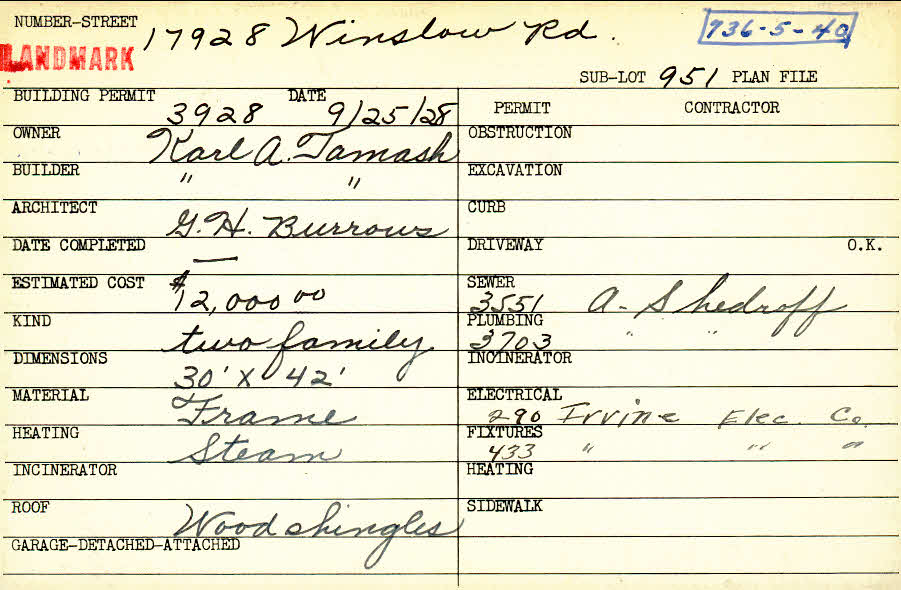 NUMBER-STREET 17928 Winslow Rd. 736-5-40
LANDMARK
SUB-LOT 951 PLAN FILE
BUILDING PERMIT 3928 DATE 9/25/28
PERMIT CONTRACTOR
OWNER Karl A. Tamash
OBSTRUCTION
BUILDER " "
EXCAVATION
ARCHITECT G. H. Burrows
CURB
DATE COMPLETED —
DRIVEWAY O.K.
ESTIMATED COST $12,000 00
SEWER 3551 A- Shedroff
KIND two family
PLUMBING 3703 " "
DIMENSIONS 30' X 42'
INCINERATOR
MATERIAL Frame
ELECTRICAL 290 Irvine Elec. Co.
HEATING Steam
FIXTURES 433 " " "
INCINERATOR
HEATING
ROOF Wood shingles
SIDEWALK
GARAGE-DETACHED-ATTACHED